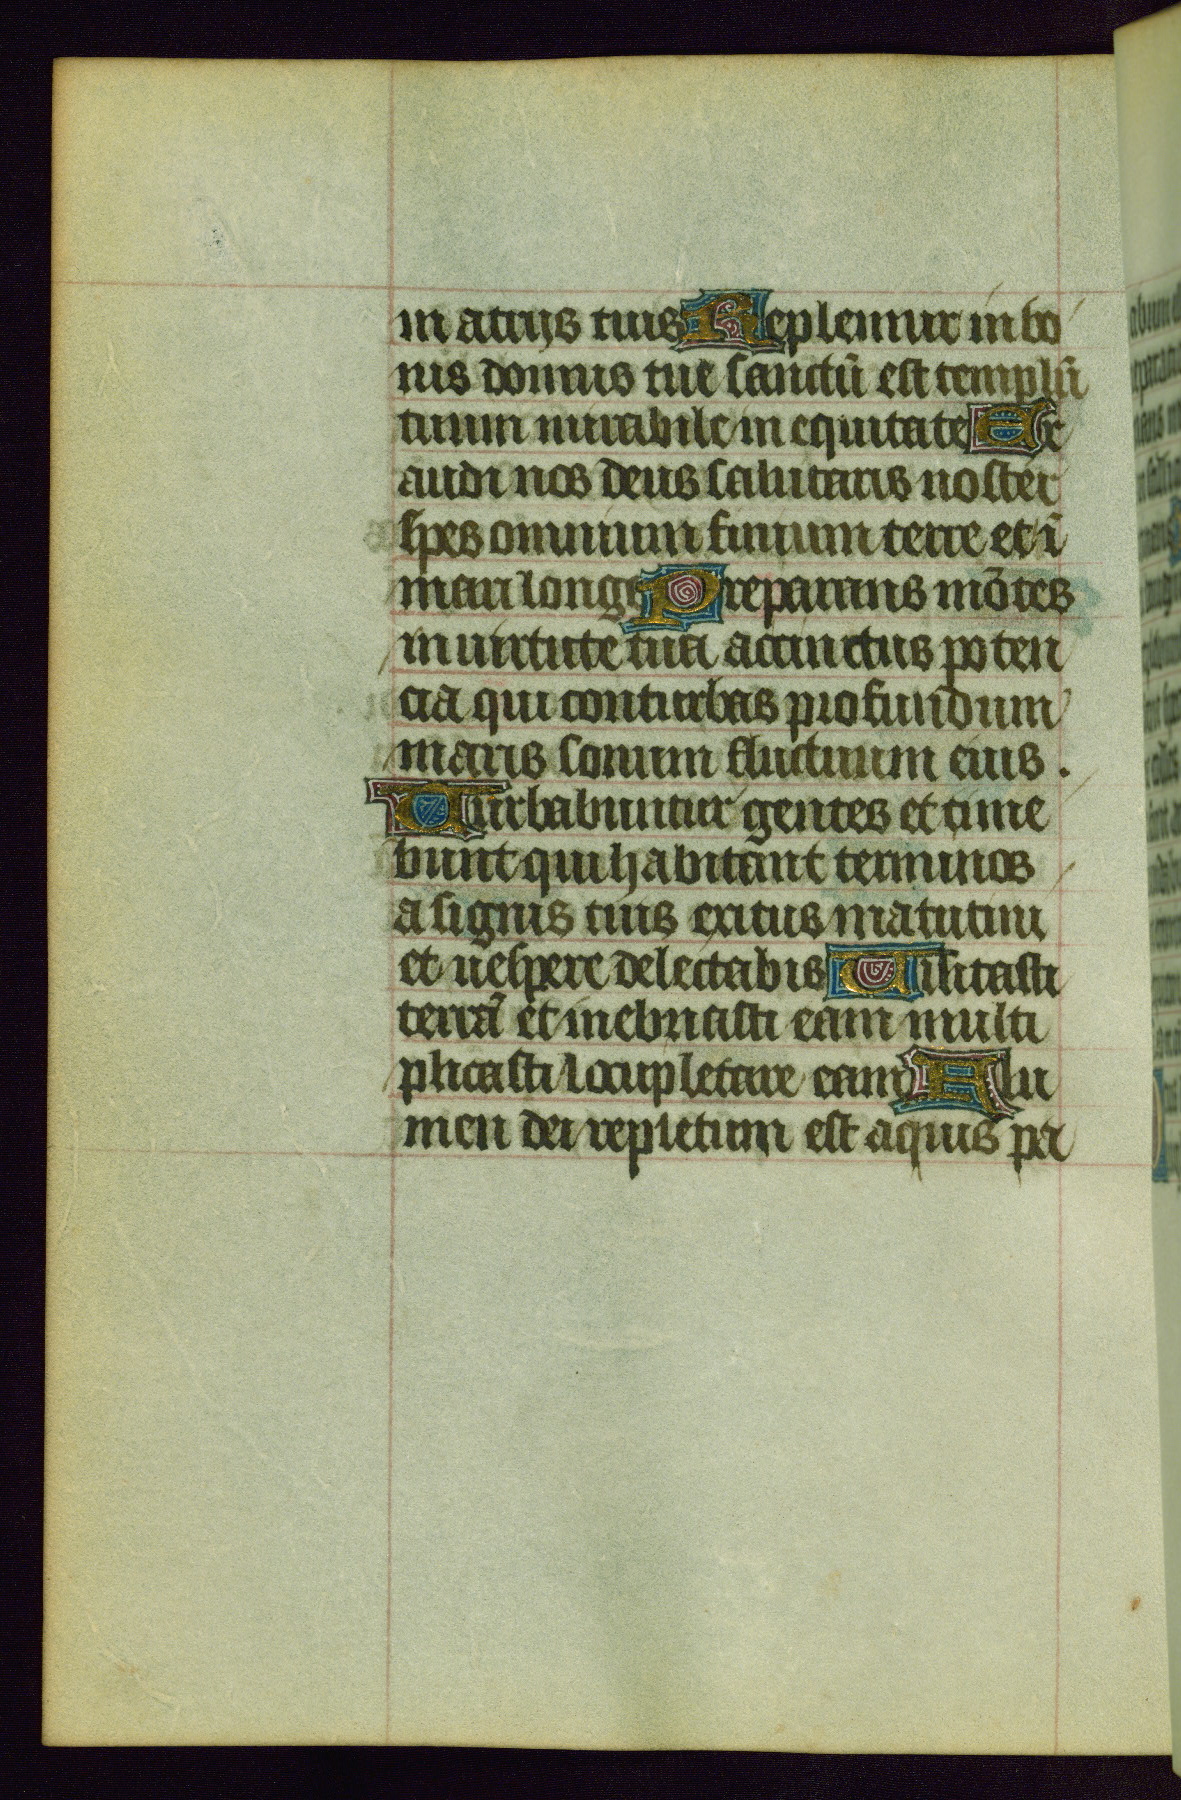 in atrijs tuis Replemur in bo
nis domus tue sanctū est templū
tuum mirabile in equitate Ex
audi nos deus salutaris noster
spes omnium finium terre et ī
mari longe Preparans mōtes
in uirtute tua accinctus poten
cia qui conturbas profundum
maris sonum fluctuum eius .
Turbabuntur gentes et time
bunt qui habitant terminos
a signis tuis exitus matutini
et uespere delectabis Uisitasti
terrā et inebriasti eam multi
plicasti locupletare eam Flu
men dei repletum est aquis pa